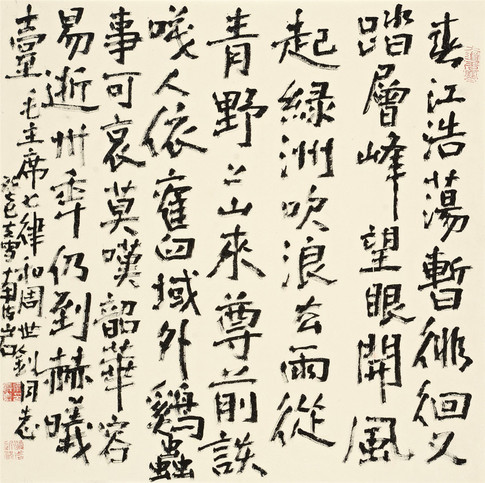 春江浩蕩暫徘徊又
踏層峰望眼開風
起綠洲吹浪去雨從
青野上山來尊前談
咲人依舊域外鷄蟲
事可哀莫嘆韶華容
易逝卅年仍到赫曦
臺 毛主席七律和周世釗同志
癸巳大雪